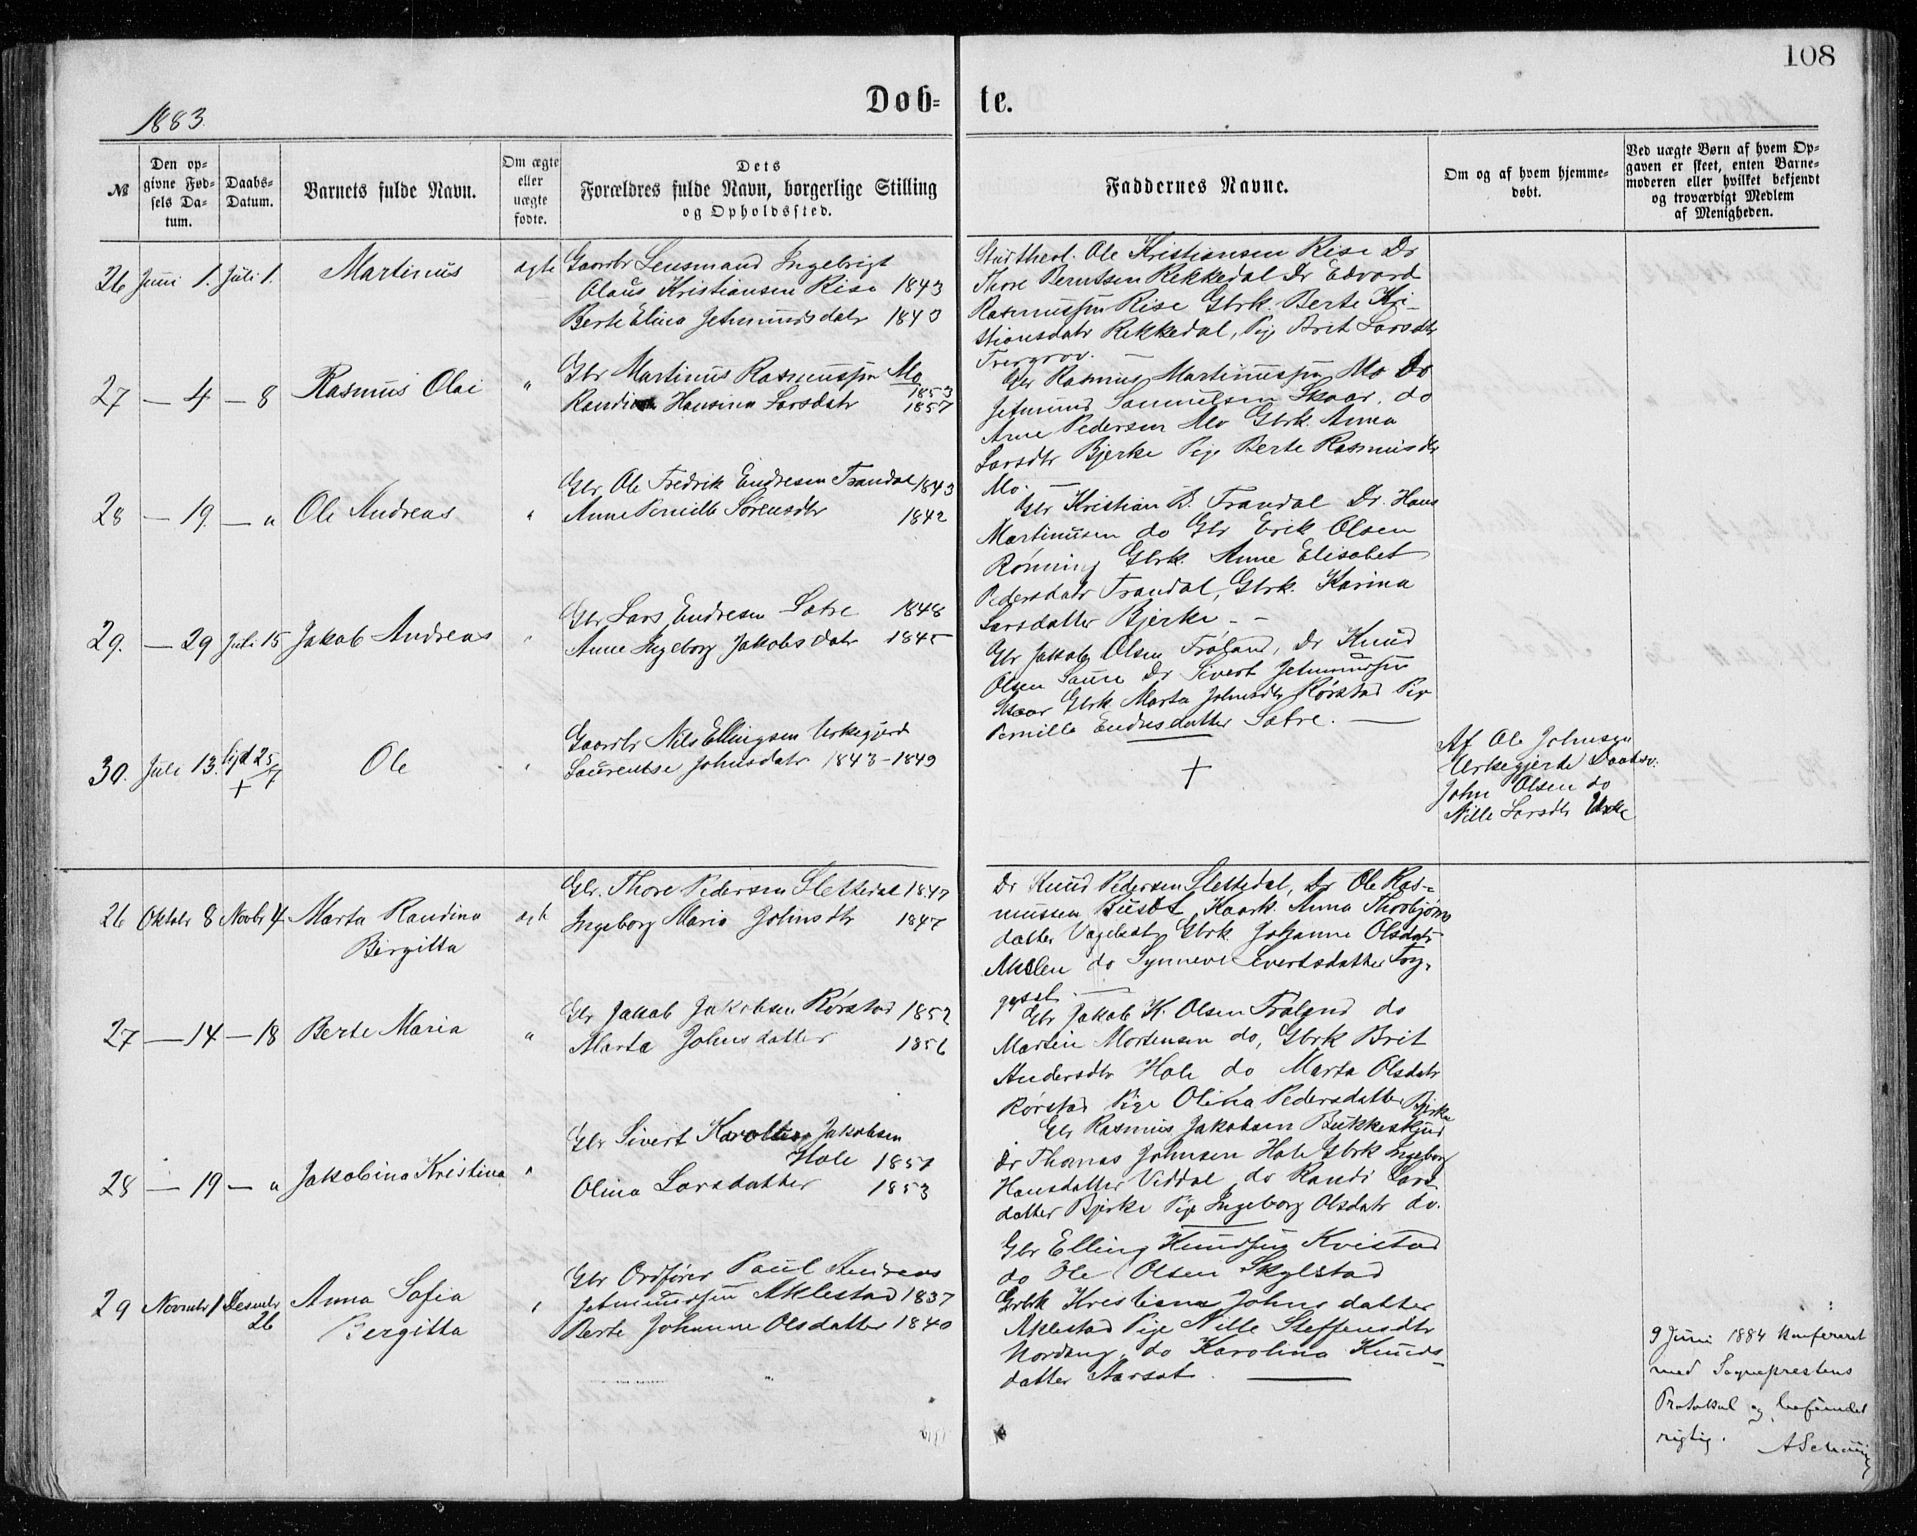 108
Døb-te.
1883.
№
Den op-
givne Fød-
sels Da-
tum.
Daabs-
Datum.
Barnets fulde Navn.
Om ægte
eller
uægte
fødte.
Dets
Forældres fulde Navn, borgerlige Stilling
og Opholdssted.
Faddernes Navne.
Om og af hvem hjemme-
døbt.
Ved uægte Børn af hvem Op-
gaven er skeet, enten Barne-
moderen eller hvilket bekjendt
og troværdigt Medlem
af Menigheden.
26 Juni 1. Juli 1. Martinus ægte
Gaardbr Lensmand Ingebrigt
Olaus Kristiansen Rise 1843
Berte Elina Jetmundsdatr 1840
Stud theol. Ole Kristiansen Rise Dr
Thore Berntsen Rekkedal Dr Edvard
Rasmussen Rise Gbrk. Berte Kri-
stiansdatr Rekkedal, Pige Brit Larsdtr
27 — 4 — 8 Rasmus Olai "
Gbr Martinus Rasmussen Mo
1853
Hansina Larsdatr 1857
Gbr Rasmus Martinussen Mo Dr
Jetmund Samuelsen Skaar, do
Arne Pedersen Mo Gbrk. Anna
Larsdtr Bjerke Pige Berte Rasmusdtr
Mo. —
28 — 19 — " Ole Andreas "
Gbr. Ole Fredrik Endresen Trandal 1843
Anne Pernille Sørensdtr 1842
Gbr Kristian B. Trandal Dr. Hans
Martinusen do Gbr Erik Olsen
Rønning Gbrk. Anne Elisabet
Pedersdatr Trandal, Gbrk. Karina
Larsdatter Bjerke. —
29. — 29 Juli 15 Jakob Andreas "
Gbr Lars Endresen Sætre 1848
Anne Ingeborg Jakobsdatr 1845
Gbr Jakob Olsen Frøland, Dr Knud
Olsen Saure Dr Sivert Jetmundsen
Skaar Gbrk Marta Johnsdtr Rørstad Pige
Pernille Endresdatter Sætre. —
30. Juli 13. 25/7 + Ole "
Gaardbr Nils Ellingsen Urkegjerd
Laurentse Johnsdatr 1843-1849
+
Af Ole Johnsen
Urkegjerde Daabsv.
John Olsen do
Nille Larsdtr Urke
26 Oktobr 8 Novbr 4. Marta Randina ægte
Birgitta
Gbr. Thore Pedersen Slettedal 1847
Ingeborg Maria Johnsdtr 1847
Dr Knud Pedersen Slettedal, Dr Ole Ras-
mussen Kaark. Anna Thorbjørns
datter Gbrk. Johanne Olsdatr
Aklen do Synneve Evertsdatter
27 — 14 — 18 Berte Maria "
Gbr Jakob Jakobsen Rørstad 1852
Marta Johnsdatter 1856
Gbr Jakob K. Olsen Frøland do
Martin Mortensen do, Gbrk Brit
Andersdtr Hole do Marta Olsdatr
Rørstad Pige Olina Pedersdatter Bjerke
28 — 19 — " Jakobina Kristina "
Gbr Sivert Jakobsen
Hole 1851
Olina Larsdatter 1853
Gbr Rasmus Jakobsen
Dr Thomas Johnsen Hole Gbrk Ingeborg
Hansdatter Viddal, do Randi Lars-
datter Bjerke Pige Ingeborg Olsdatr do.
29 Novmbr 1 Desmbr 26 Anna Sofia "
Bergitta
Gbr Ordfører Paul Andreas
Jetmundsen Aklestad 1837
Berte Johanne Olsdatter 1840
Gbr Elling Knudsen Kvistad
do Ole Olsen Skylstad
Gbrk Kristiane Johnsdatter
Aklestad Pige Nille Steffensdtr
Nordang, do Karolina Knuds-
datter Aarsæt. —
9 Juni 1884 konfereret
med Sogneprestens
Protokol og befundet
rigtig.